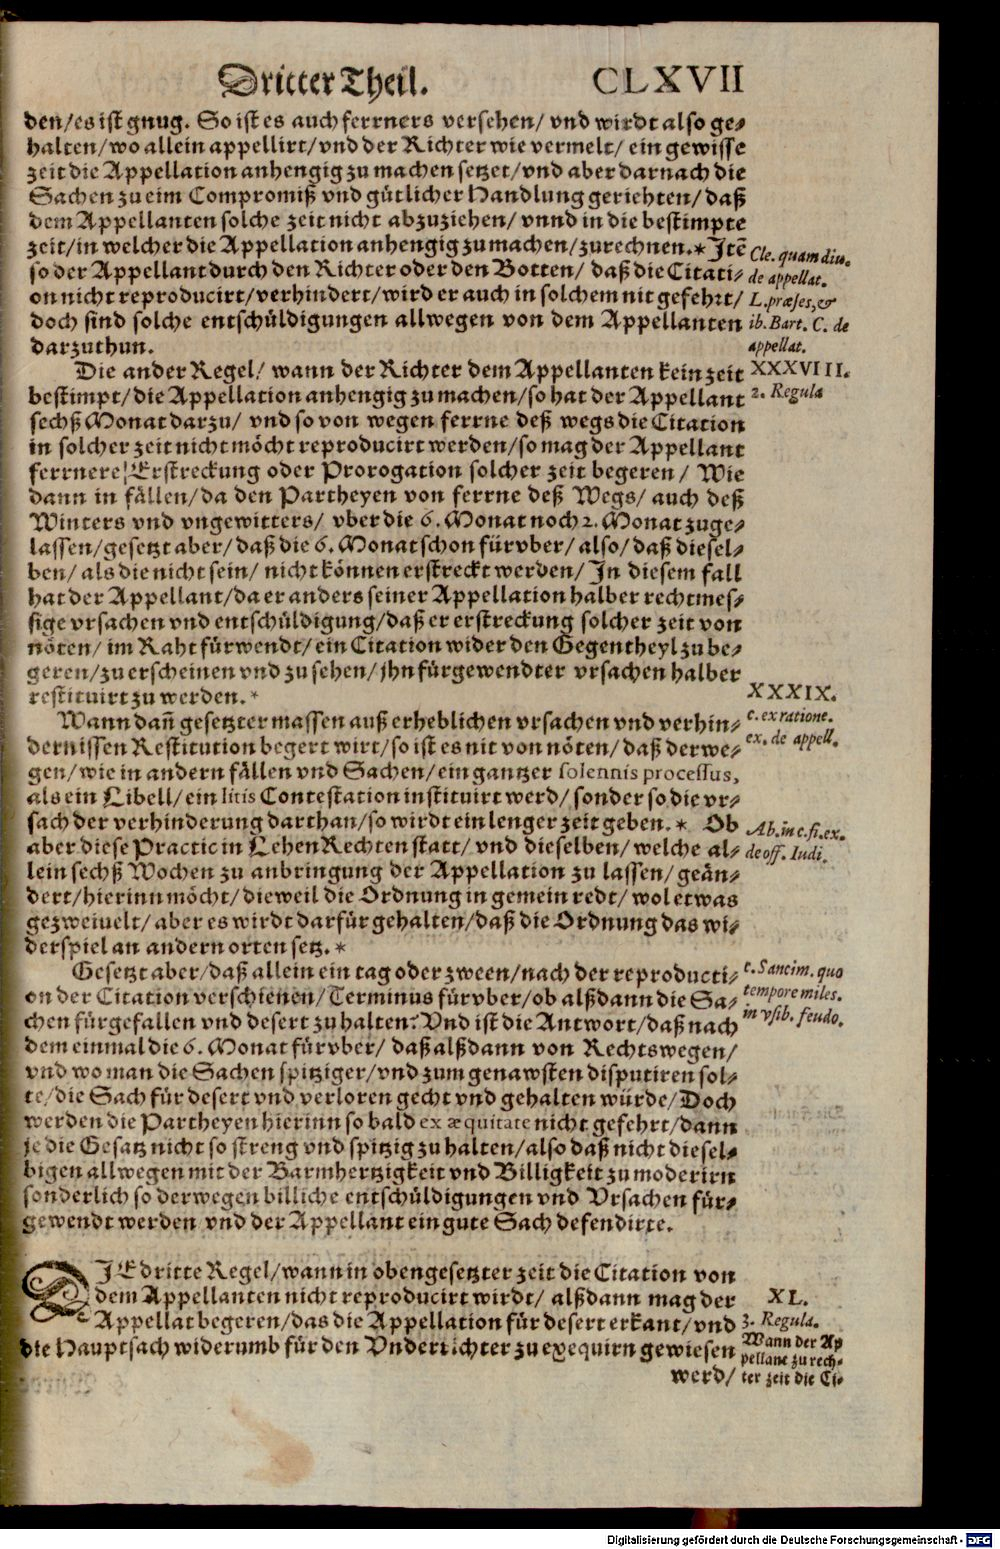 Dritter Theil. CLXVII
den/es ist gnug. So ist es auch ferrners versehen/ vnd wirdt also ge-
halten/wo allein appellirt/vnd der Richter wie vermelt/ ein gewisse
zeit die Appellation anhengig zu machen setzet/vnd aber darnach die
Sachen zu eim Compromiß vnd gütlicher Handlung geriehten/daß
dem Appellanten solche zeit nicht abzuziehen/ vnnd in die bestimpte
zeit/in welcher die Appellation anhengig zumachen/zurechnen.* Itē
so der Appellant durch den Richter oder den Botten/ daß die Citati-
on nicht reproducirt/verhindert/wird er auch in solchem nit gefehrt/
doch sind solche entschüldigungen allwegen von dem Appellanten
darzuthun.
Cle. quam diu.
de appellat.
L. præses, &
ib. Bart. C. de
appellat.
Die ander Regel/ wann der Richter dem Appellanten kein zeit
bestimpt/die Appellation anhengig zu machen/so hat der Appellant
sechß Monat darzu/ vnd so von wegen ferrne deß wegs die Citation
in solcher zeit nicht möcht reproducirt werden/so mag der Appellant
ferrnere/Erstreckung oder Prorogation solcher zeit begeren/ Wie
dann in fällen/da den Partheyen von ferrne deß Wegs/ auch deß
Winters vnd vngewitters/ vber die 6. Monat noch 2. Monat zuge-
lassen/gesetzt aber/daß die 6. Monat schon fürvber/ also/daß diesel-
ben/ als die nicht sein/ nicht können erstreckt werden/ In diesem fall
hat der Appellant/da er anders seiner Appellation halber rechtmes-
sige vrsachen vnd entschüldigung/daß er erstreckung solcher zeit von
nöten/ im Raht fürwendt/ein Citation wider den Gegentheyl zu be-
geren/zu erscheinen vnd zu sehen/jhn fürgewendter vrsachen halber
restituirt zu werden.*
XXXVIII.
2. Regula
Wann dañ gesetzter massen auß erheblichen vrsachen vnd verhin-
dernissen Restitution begert wirt/so ist es nit von nöten/daß der we-
gen/wie in andern fällen vnd Sachen/ein gantzer solennis processus,
als ein Libell/ein litis Contestation instituirt werd/sonder so die vr-
sach der verhinderung darthan/so wirdt ein lenger zeit geben.* Ob
aber diese Practic in Lehen Rechten statt/ vnd dieselben/welche al-
lein sechß Wochen zu anbringung der Appellation zu lassen/geän-
dert/hierinn möcht/dieweil die Ordnung in gemein redt/wol etwas
gezweiuelt/aber es wirdt darfür gehalten/daß die Ordnung das wi-
derspiel an andern orten setz.*
XXXIX.
c. ex ratione.
ex. de appell.
Ab. in c. fi. ex.
de off. Iudi.
Gesetzt aber/daß allein ein tag oder zween/nach der reproducti-
on der Citation verschienen/Terminus fürvber/ob alßdann die Sa-
chen fürgefallen vnd desert zu halten? Vnd ist die Antwort/daß nach
dem einmal die 6. Monat fürvber/ daß alßdann von Rechtswegen/
vnd wo man die Sachen spitziger/vnd zum genawsten disputiren sol-
te/die Sach für desert vnd verloren gecht vnd gehalten würde/Doch
werden die Partheyen hierinn so bald ex æquitate nicht gefehrt/dann
je die Gesatz nicht so streng vnd spitzig zu halten/also daß nicht diesel-
bigen allwegen mit der Barmhertzigkeit vnd Billigkeit zu moderirn
sonderlich so derwegen billiche entschüldigungen vnd Vrsachen für-
gewendt werden vnd der Appellant ein gute Sach defendirte.
c. Sancim. quo
tempore miles.
in vsib. feudo.
DIE dritte Regel/wann in obengesetzter zeit die Citation von
dem Appellanten nicht reproducirt wirdt/ alßdann mag der
Appellat begeren/das die Appellation für desert erkant/vnd
die Hauptsach widerumb für den Vnderrichter zu exequirn gewiesen
werd/
XL.
3. Regula.
Wann der Ap
pellant zu rech-
ter zeit die Ci-
Digitalisierung gefördert durch die Deutsche Forschungsgemeinschaft - DFG